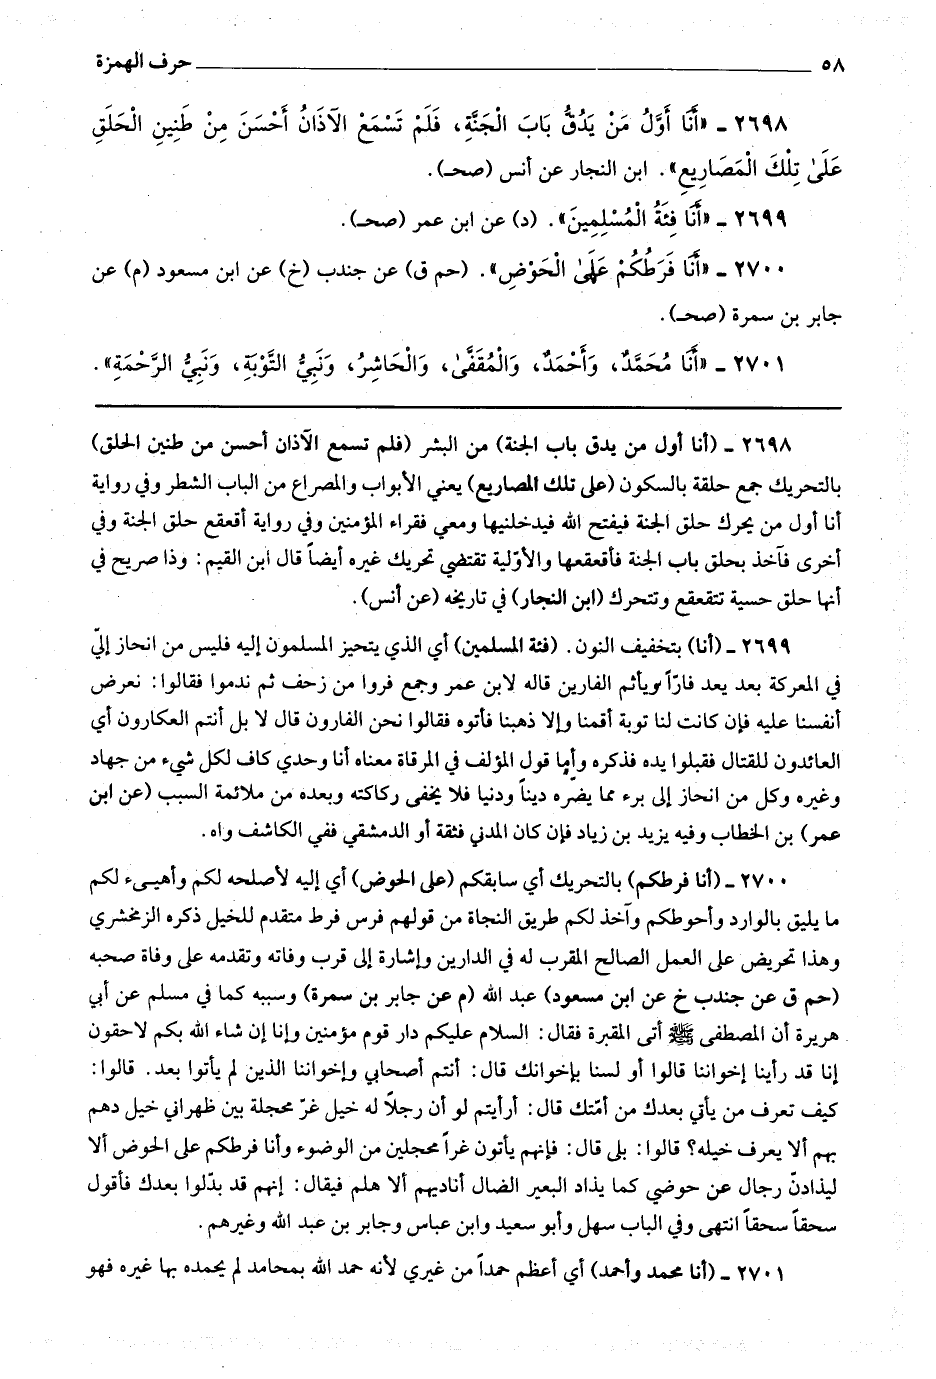 ٥٨ حرف الهمزة
٢٦٩٨ ـ «أَنَا أَوَّلُ مَنْ يَدُقُّ بَابَ الْجَنَّةِ، فَلَمْ تَسْمَعْ الآذَانُ أَحْسَنَ مِنْ طَنِينِ الْحَلَقِ
عَلَىٰ تِلْكَ الْمَصَارِيعِ». ابن النجار عن أنس (صحـ).
٢٦٩٩ ـ «أَنَا فِئَةُ الْمُسْلِمِينَ». (د) عن ابن عمر (صحـ).
٢٧٠٠ ـ «أَنَا فَرَطُكُمْ عَلَىٰ الْحَوْضِ». (حم ق) عن جندب (خ) عن ابن مسعود (م) عن
جابر بن سمرة (صحـ).
٢٧٠١ ـ «أَنَا مُحَمَّدٌ، وَأَحْمَدٌ، وَالْمُقَفَّىٰ، وَالْحَاشِرُ، وَنَبِيُّ التَّوْبَةِ، وَنَبِيُّ الرَّحْمَةِ».
٢٦٩٨ ـ (أنا أول من يدق باب الجنة) من البشر (فلم تسمع الآذان أحسن من طنين الحلق)
بالتحريك جمع حلقة بالسكون (على تلك المصاريع) يعني الأبواب والمصراع من الباب الشطر وفي رواية
أنا أول من يحرك حلق الجنة فيفتح الله فيدخلنيها ومعي فقراء المؤمنين وفي رواية أقعقع حلق الجنة وفي
أخرى فآخذ بحلق باب الجنة فأقعقعها والأوّلية تقتضي تحريك غيره أيضاً قال ابن القيم: وذا صريح في
أنها حلق حسية تتقعقع وتتحرك (ابن النجار) في تاريخه (عن أنس).
٢٦٩٩ ـ (أنا) بتخفيف النون. (فئة المسلمين) أي الذي يتحيز المسلمون إليه فليس من انحاز إليّ
في المعركة بعد يعد فارّاً ويأثم الفارين قاله لابن عمر وجمع فروا من زحف ثم ندموا فقالوا: نعرض
أنفسنا عليه فإن كانت لنا توبة أقمنا وإلا ذهبنا فأتوه فقالوا نحن الفارون قال لا بل أنتم العكارون أي
العائدون للقتال فقبلوا يده فذكره وأما قول المؤلف في المرقاة معناه أنا وحدي كاف لكل شيء من جهاد
وغيره وكل من انحاز إلى برء مما يضره ديناً ودنيا فلا يخفى ركاكته وبعده من ملائمة السبب (عن ابن
عمر) بن الخطاب وفيه يزيد بن زياد فإن كان المدني فثقة أو الدمشقي ففي الكاشف واه.
٢٧٠٠ ـ (أنا فرطكم) بالتحريك أي سابقكم (على الحوض) أي إليه لأصلحه لكم وأهيىء لكم
ما يليق بالوارد وأحوطكم وآخذ لكم طريق النجاة من قولهم فرس فرط متقدم للخيل ذكره الزمخشري
وهذا تحريض على العمل الصالح المقرب له في الدارين وإشارة إلى قرب وفاته وتقدمه على وفاة صحبه
(حم ق عن جندب خ عن ابن مسعود) عبد الله (م عن جابر بن سمرة) وسببه كما في مسلم عن أبي
هريرة أن المصطفى ﷺ أتى المقبرة فقال: السلام عليكم دار قوم مؤمنين وإنا إن شاء الله بكم لاحقون
إنا قد رأينا إخواننا قالوا أو لسنا بإخوانك قال: أنتم أصحابي وإخواننا الذين لم يأتوا بعد. قالوا:
كيف تعرف من يأتي بعدك من أمّتك قال: أرأيتم لو أن رجلاً له خيل غرّ محجلة بين ظهراني خيل دهم
بهم ألا يعرف خيله؟ قالوا: بلى قال: فإنهم يأتون غراً محجلين من الوضوء وأنا فرطكم على الحوض ألا
ليذادنّ رجال عن حوضي كما يذاد البعير الضال أناديهم ألا هلم فيقال: إنهم قد بدّلوا بعدك فأقول
سحقاً سحقاً انتهى وفي الباب سهل وأبو سعيد وابن عباس وجابر بن عبد الله وغيرهم.
٢٧٠١ ـ (أنا محمد وأحمد) أي أعظم حمداً من غيري لأنه حمد الله بمحامد لم يحمده بها غيره فهو